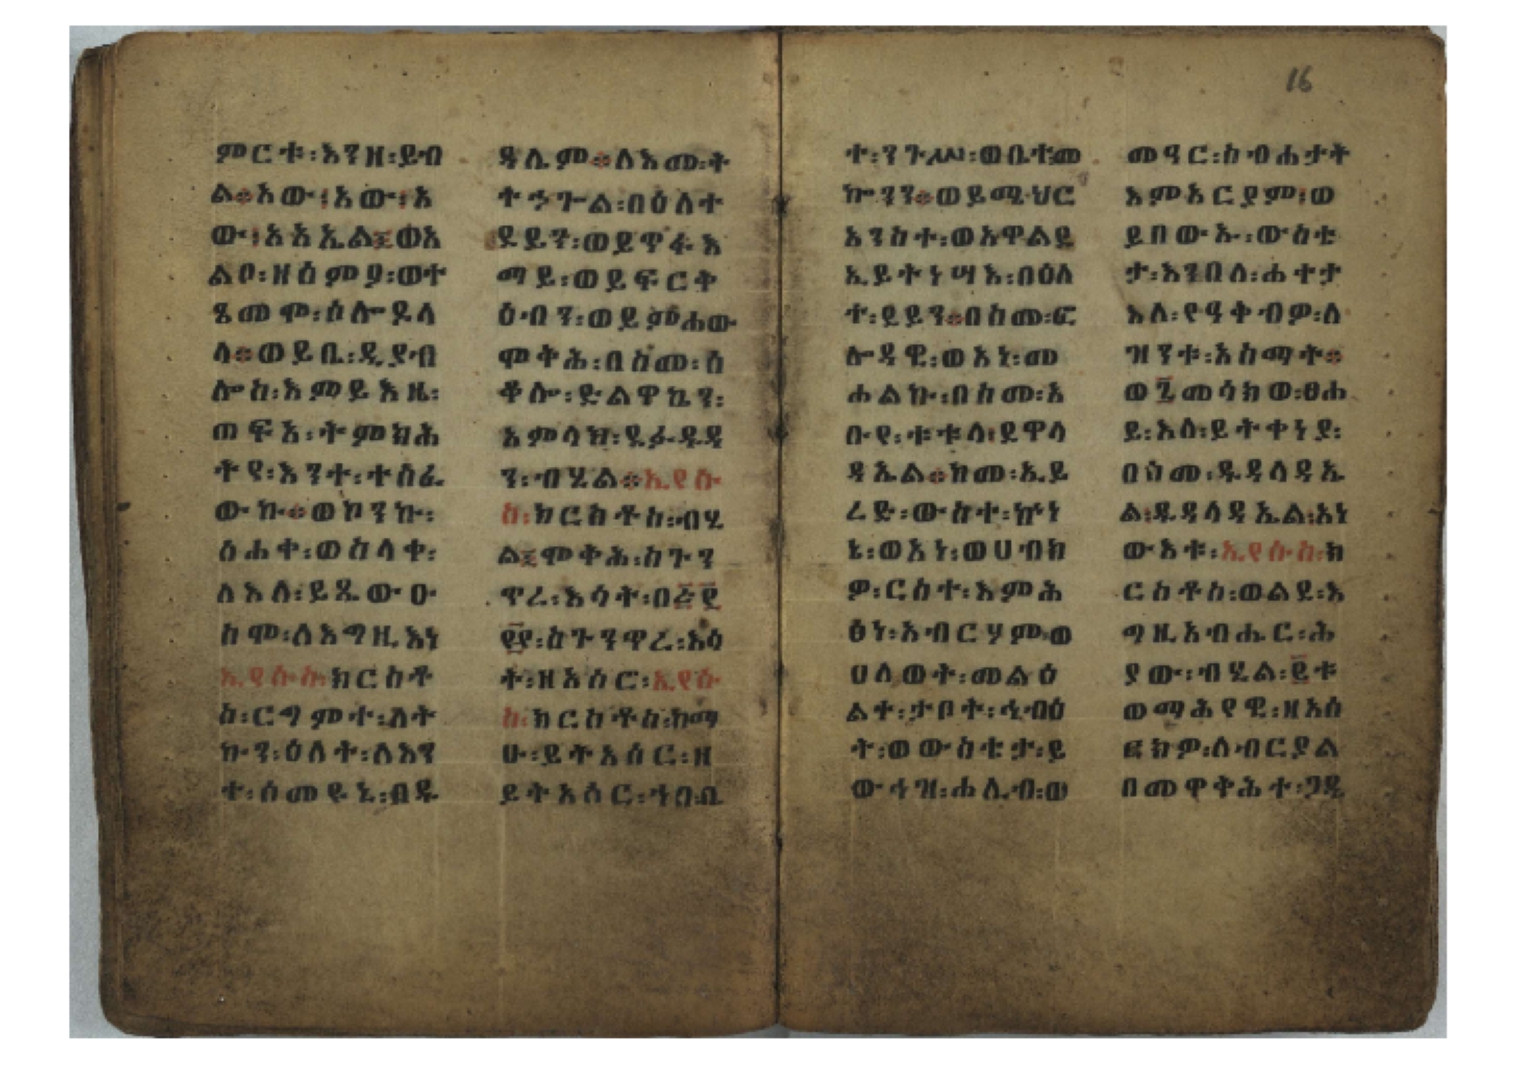 ምርቱ፡እንዘ፡ይብ
ል፨አው፡አው፡አ
ው፡አአኢል፤ወአ
ልቦ፡ዘሰምዖ፡ወተ
ጼመሞ፡ሰሎዶላ
ላ፨ወይቤ፡ዲያብ
ሎስ፡እምይእዜ፡
ጠፍአ፡ትምክሕ
ትየ፡እንተ፡ተሰፈ
ውኩ፨ወኮንኩ፡
ስሐቀ፡ወስላቀ፡
ለእለ፡ይጼውዑ
ስሞ፡ለእግዚእነ
ኢየሱስ፡ክርስቶ
ስ፡ርግምተ፡ለት
ኩን፡ዕለት፡ለእን
ተ፡ሰመዩኒ፡ብዱ
ዳሊም፨ለእሙ፡ት
ተኃጐል፡በዕለተ
ደይን፡ወይጥፋእ
ማይ፡ወይፍርቅ
ዕብን፡ወይምሐው
ሞቅሕ፡በስሙ፡ሰ
ቆሎ፡ድልዋኪን፡
አምሳክ፡ዴፊዱዳ
ን፡ብሂል፨ኢየሱ
ስ፡ክርስቶስ፡ብሂ
ል፤ሞቅሕ፡ስጉን
ጥረ፡እሳት፡በ፳፻
፼፡ስጉንዋረ፡እሳ
ት፡ዘአሰሮ፡ኢየሱ
ስ፡ክርስቶስ፡ከማ
ሁ፡ይትአሰር፡ዘ
ይትአሰር፡ኀበ፡ቤ
ተ፡ንጉሥ፡ወቤተ፡መ
ኰንን፨ወይሜህሮ
አንስተ፡ወአዋልደ
ኢይትነሣእ፡በዕለ
ተ፡ደይን፨በስሙ፡ፎ
ሎዳዊ፡ወአነ፡መ
ሐልኩ፡በስሙ፡አ
ቡየ፡ቱቱላ፡ደዋላ
ዳኤል፨ከመ፡ኢይ
ረድ፡ውስተ፡ኵነ
ኔ፡ወእነ፡ወሀብክ
ዎ፡ርስተ፡እምሕ
ፅነ፡አብርሃም፡ወ
ሀለወት፡መልዕ
ልተ፡ታቦት፡ኅብዕ
ት፡ወውስቴታ፡ይ
ውኅዝ፡ሐሊብ፡ወ
መዓር፡ስብሐታት
እምአርያም፡ወ
ይበውኡ፡ውስቴ
ታ፡እንበለ፡ሐተታ
እለ፡የዓቅብዎ፡ለ
ዝንቱ፡አስማት፨
ወ፯መሳክው፡ፀሐ
ይ፡እለ፡ይትቀነያ፡
በስመ፡ዱዳላዳኤ
ል፡ዱዳላዳኤል፡አነ
ውእቱ፡ኢየሱስ፡ክ
ርስቶስ፡ወልደ፡እ
ግዚአብሔር፡ሕ
ያው፡ብሂል፡፪ቱ
ወማሕየዊ፡ዘአሰ
ፎክዎ፡ለብርያል
በመዋቅሕተ፡ጋዲ
16